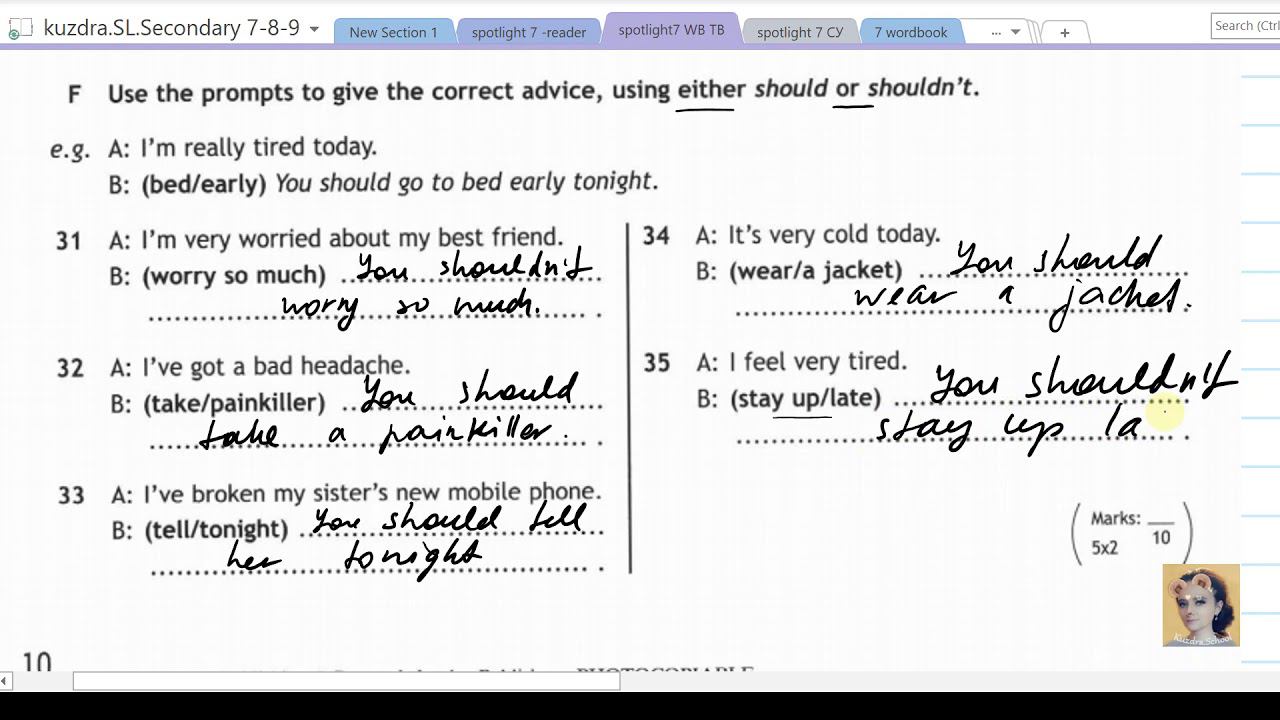 kuzdra.SL.Secondary 7-8-9
New Section 1
spotlight 7 -reader
spotlight7 WB TB
spotlight 7 СУ
7 wordbook
...
+
Search (Ctrl
F Use the prompts to give the correct advice, using either should or shouldn't.
e.g. A: I'm really tired today.
B: (bed/early) You should go to bed early tonight.
31 A: I'm very worried about my best friend.
B: (worry so much) You shouldn't
worry so much.
32 A: I've got a bad headache.
B: (take/painkiller) You should
take a painkiller.
33 A: I've broken my sister's new mobile phone.
B: (tell/tonight) You should tell
her tonight
34 A: It's very cold today.
B: (wear/a jacket) You should
wear a jacket.
35 A: I feel very tired.
B: (stay up/late) You shouldn't
stay up la
Marks: __
5x2 10
Kuzdra.School
10
PHOTOCOPIABLE